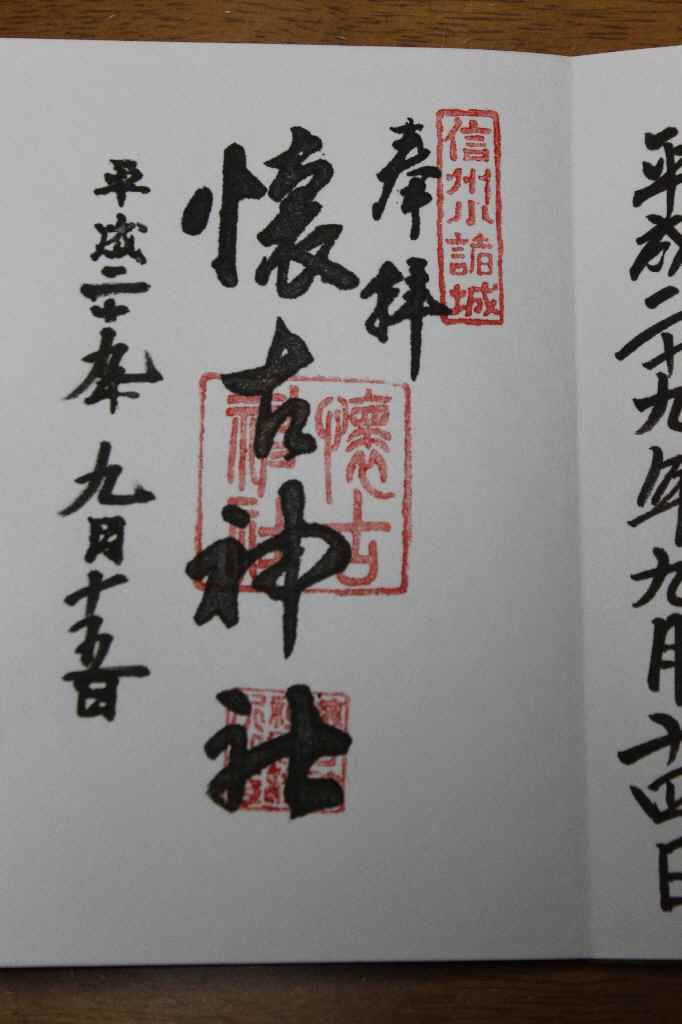 平成二十九年九月十四日
信州小諸城
奉拝
懐古神社
懐古
神社
平成二十九年九月十五日